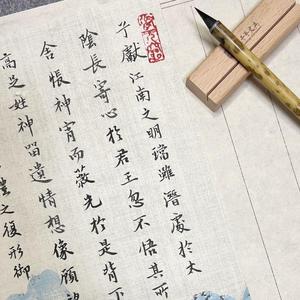 兮獻江南之明璫雖潛處於太
陰長寄心於君王忽不悟其所
舍悵神宵而蔽光於是背下
高足往神留遺情想像顧望
體之復形御